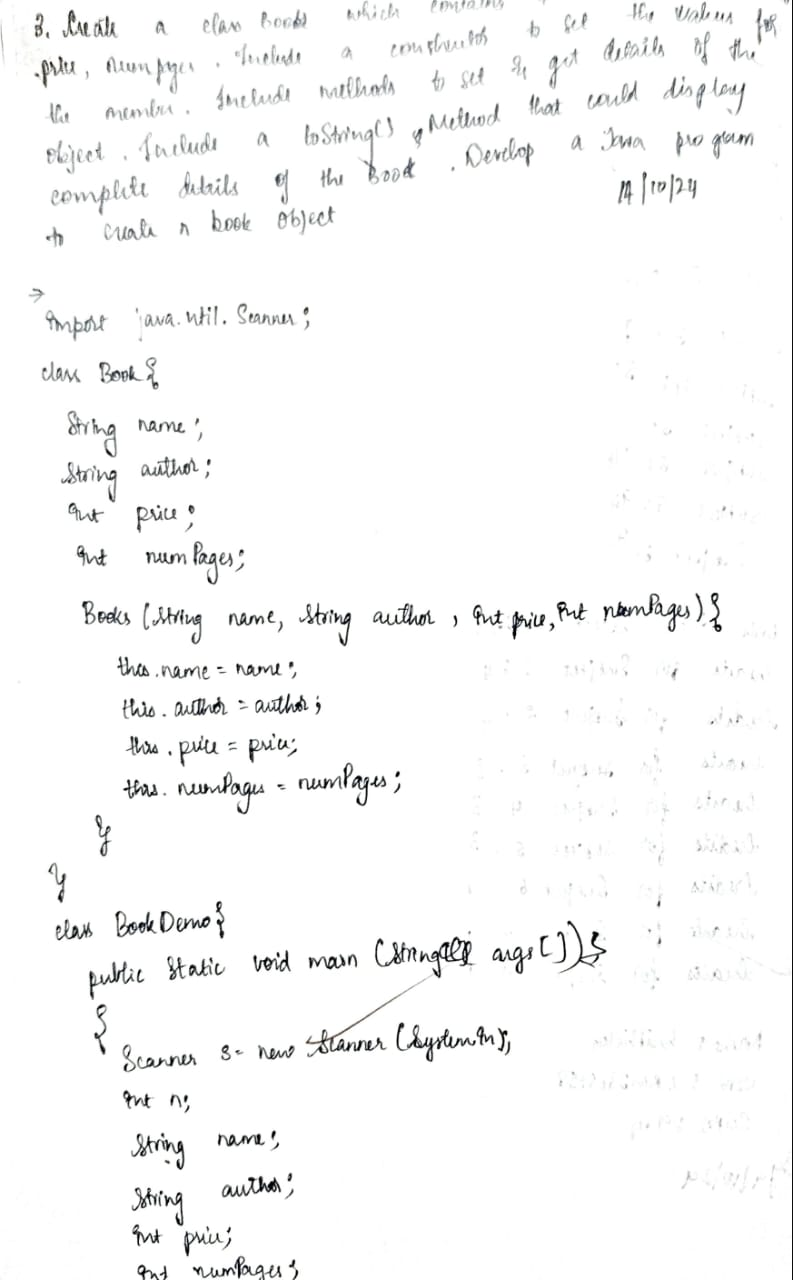 3. Create a class Books which contains
price, numpges. Include a constructor to set the values for
the member. Include methods to set & get details of the
object. Include a toString() Method that could display
complete details of the Book. Develop a Java program
to create n book object
14/10/24
→
import java.util.Scanner;
class Book{
String name;
String author;
int price;
int numPages;
Books (String name, String author, int price, int numPages){
this.name = name;
this.author = author;
this.price = price;
this.numPages = numPages;
}
}
class BookDemo{
public static void main (String args[])
{
Scanner s = new Scanner (System.in);
int n;
String name;
String author;
int price;
int numPages;